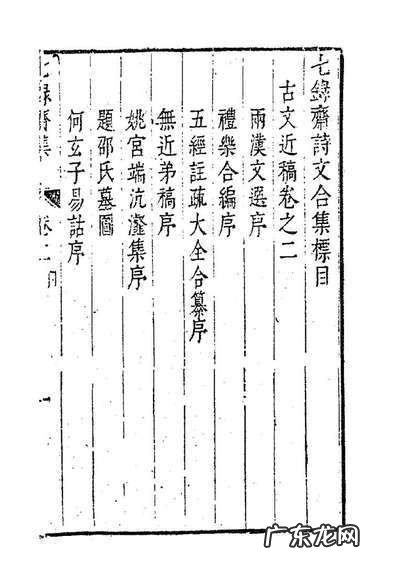 七錄齋詩文合集標目
古文近稿卷之二
兩漢文選序
禮樂合編序
五經註疏大全合纂序
無近弟稿序
姚宮端沆瀣集序
題邵氏墓圖
何玄子易詁序
七錄齋集
卷二
一
广东龙网